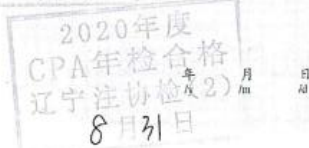 2020年度
CPA年检合格
辽宁注协检(2)
8月31日
年 月 日
/y /m /d